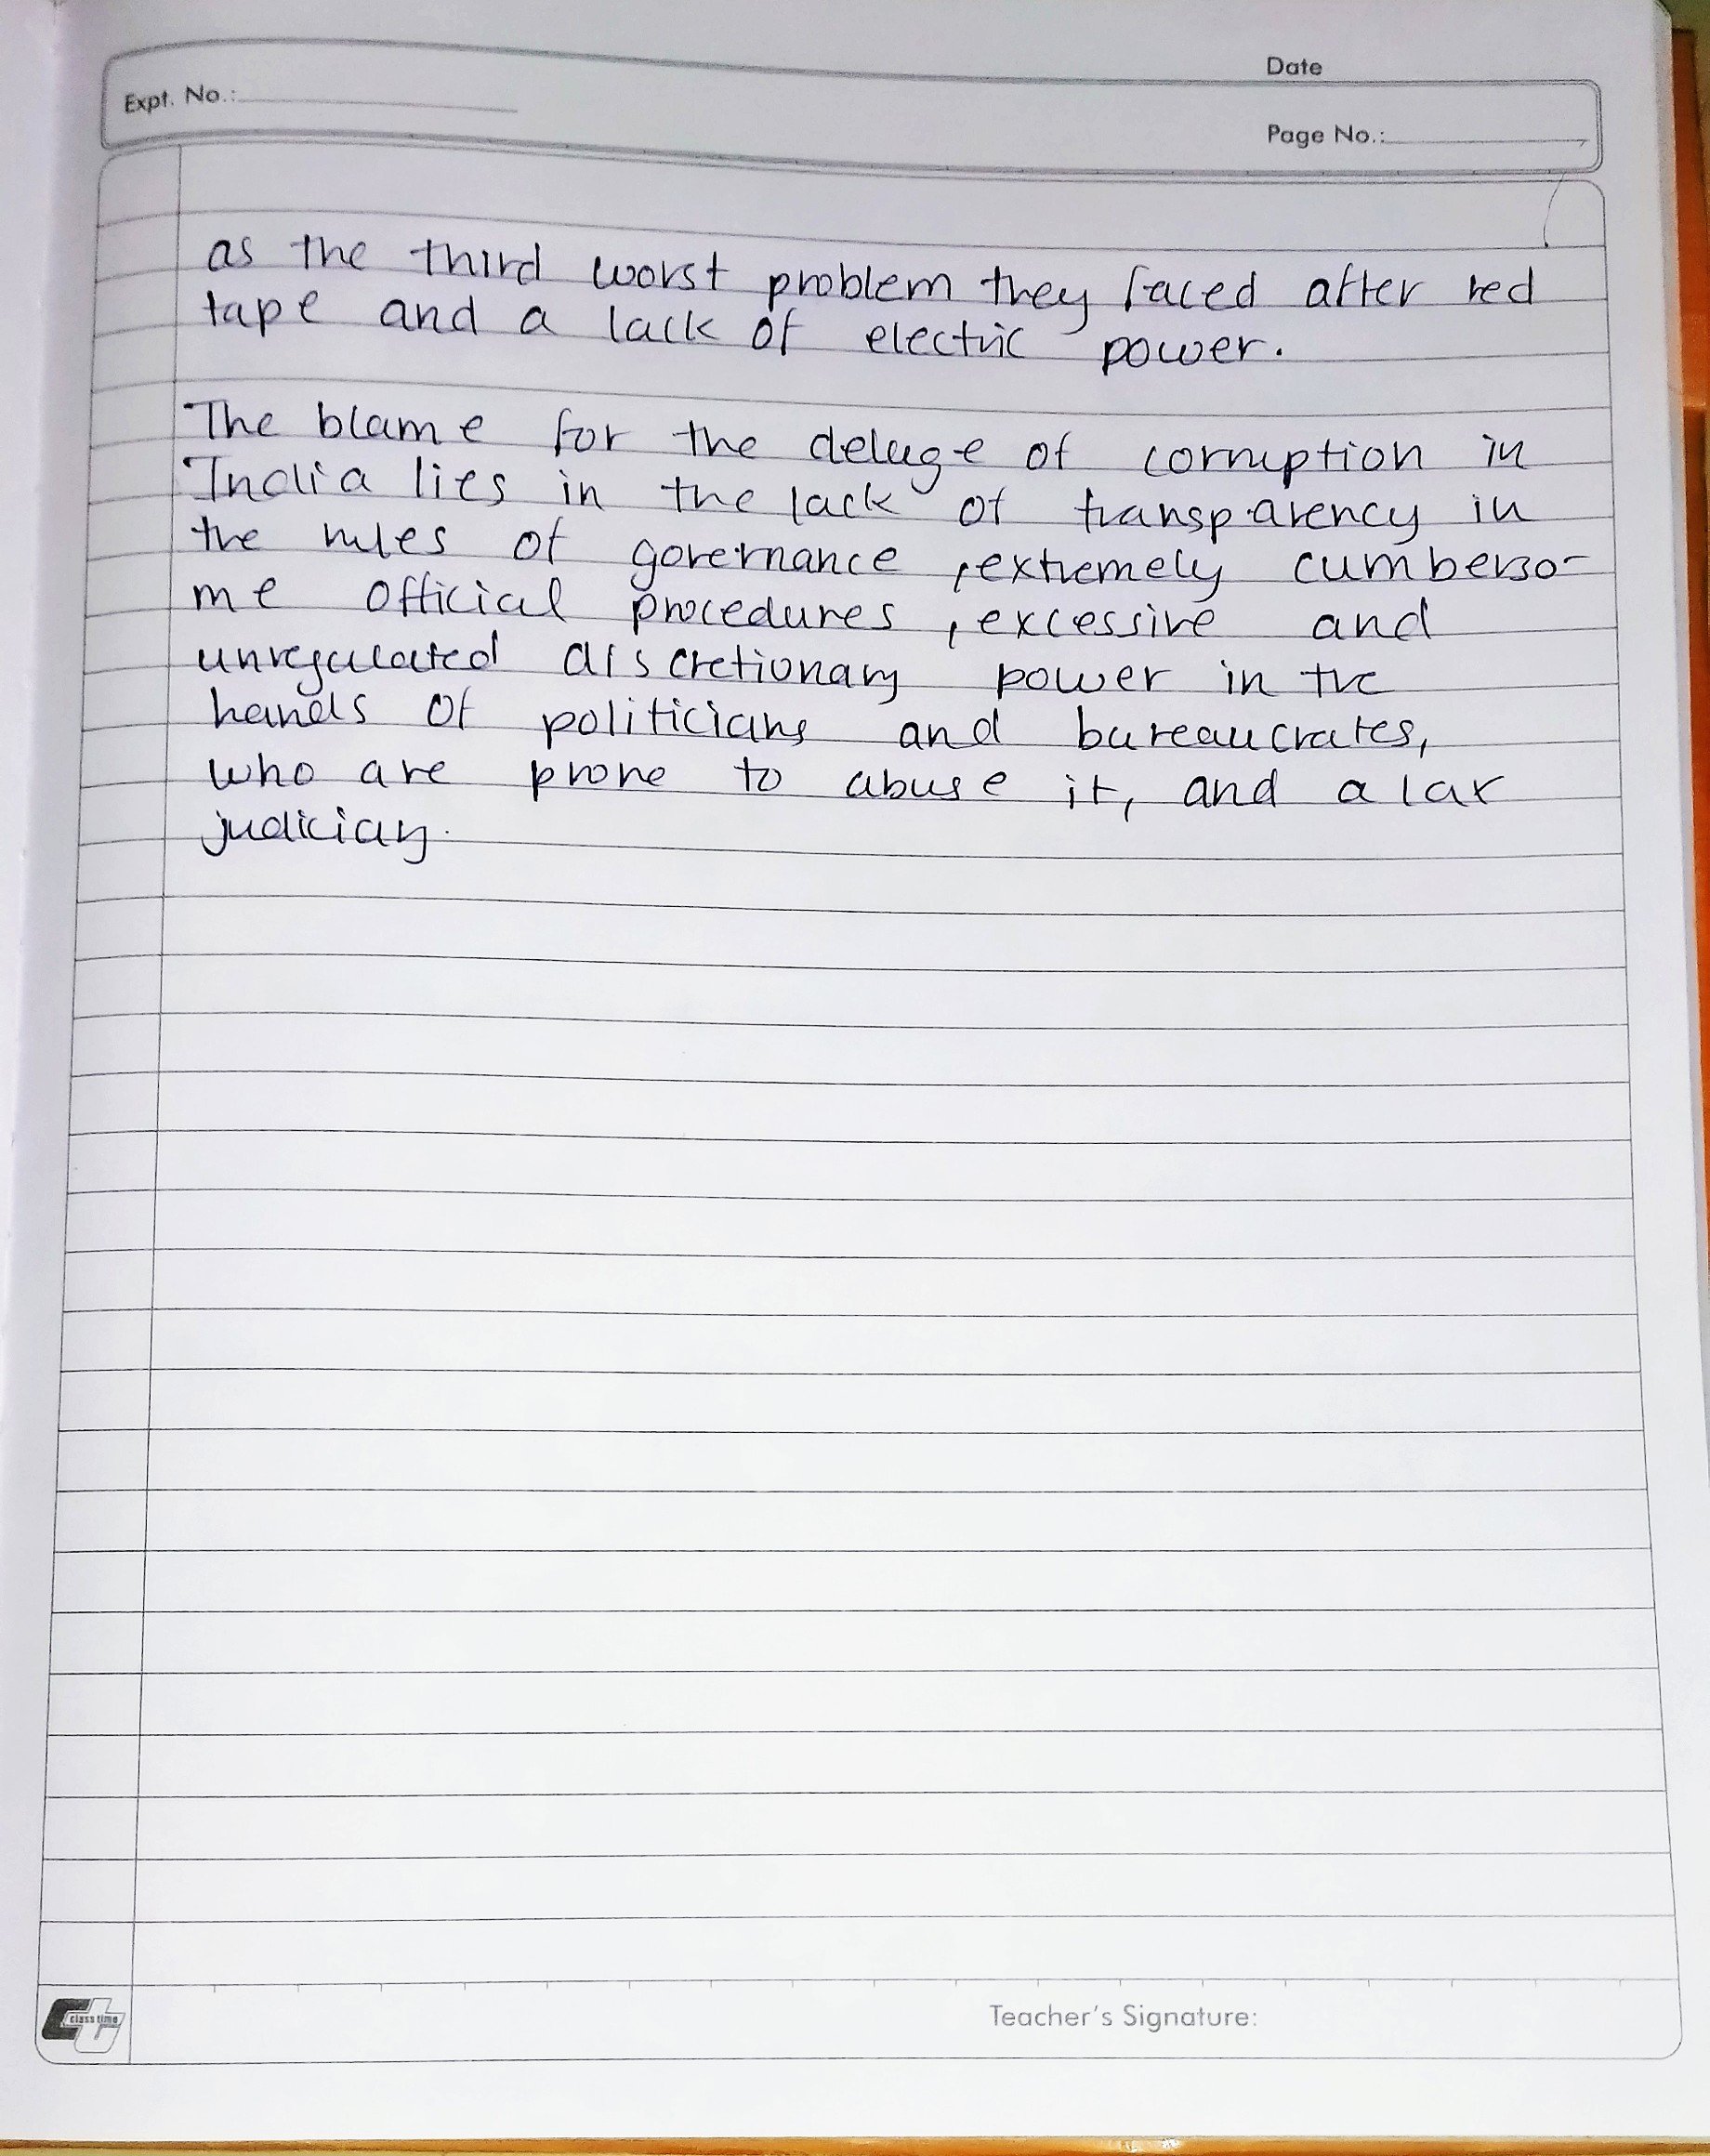 Date
Expt. No.:
Page No.:
as the third worst problem they faced after red
tape and a lack of electric power.
The blame for the deluge of corruption in
India lies in the lack of transparency in
the rules of governance, extremely cumberso-
me official procedures, excessive and
unregulated discretionary power in the
hands of politicians and bureaucrates,
who are prone to abuse it, and a lax
judiciary.
Teacher's Signature:
class time